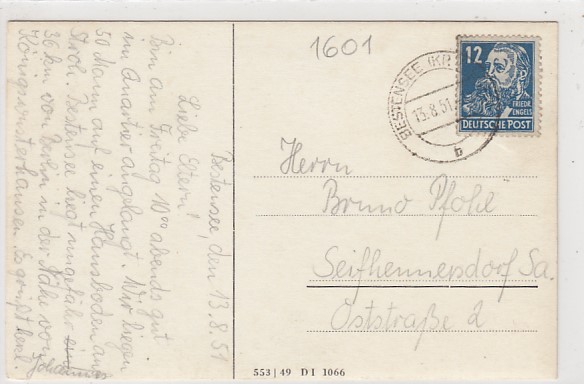 Bestensee, den 13.8.51
Liebe Eltern!
Bin am Freitag 10⁰⁰ abends gut
im Quartier angelangt. Wir liegen
50 Mann auf einen Hausboden auf
Stroh. Bestensee liegt ungefähr
36 km von Berlin in der Nähe von
Königswusterhausen. Es grüßt herzl.
Johannes
1601
BESTENSEE (KR.
13.8.51
b
12
FRIEDR.
ENGELS
DEUTSCHE POST
Herrn
Bruno Pfohl
Seifhennersdorf Sa.
Oststraße 2
553 | 49 D I 1066